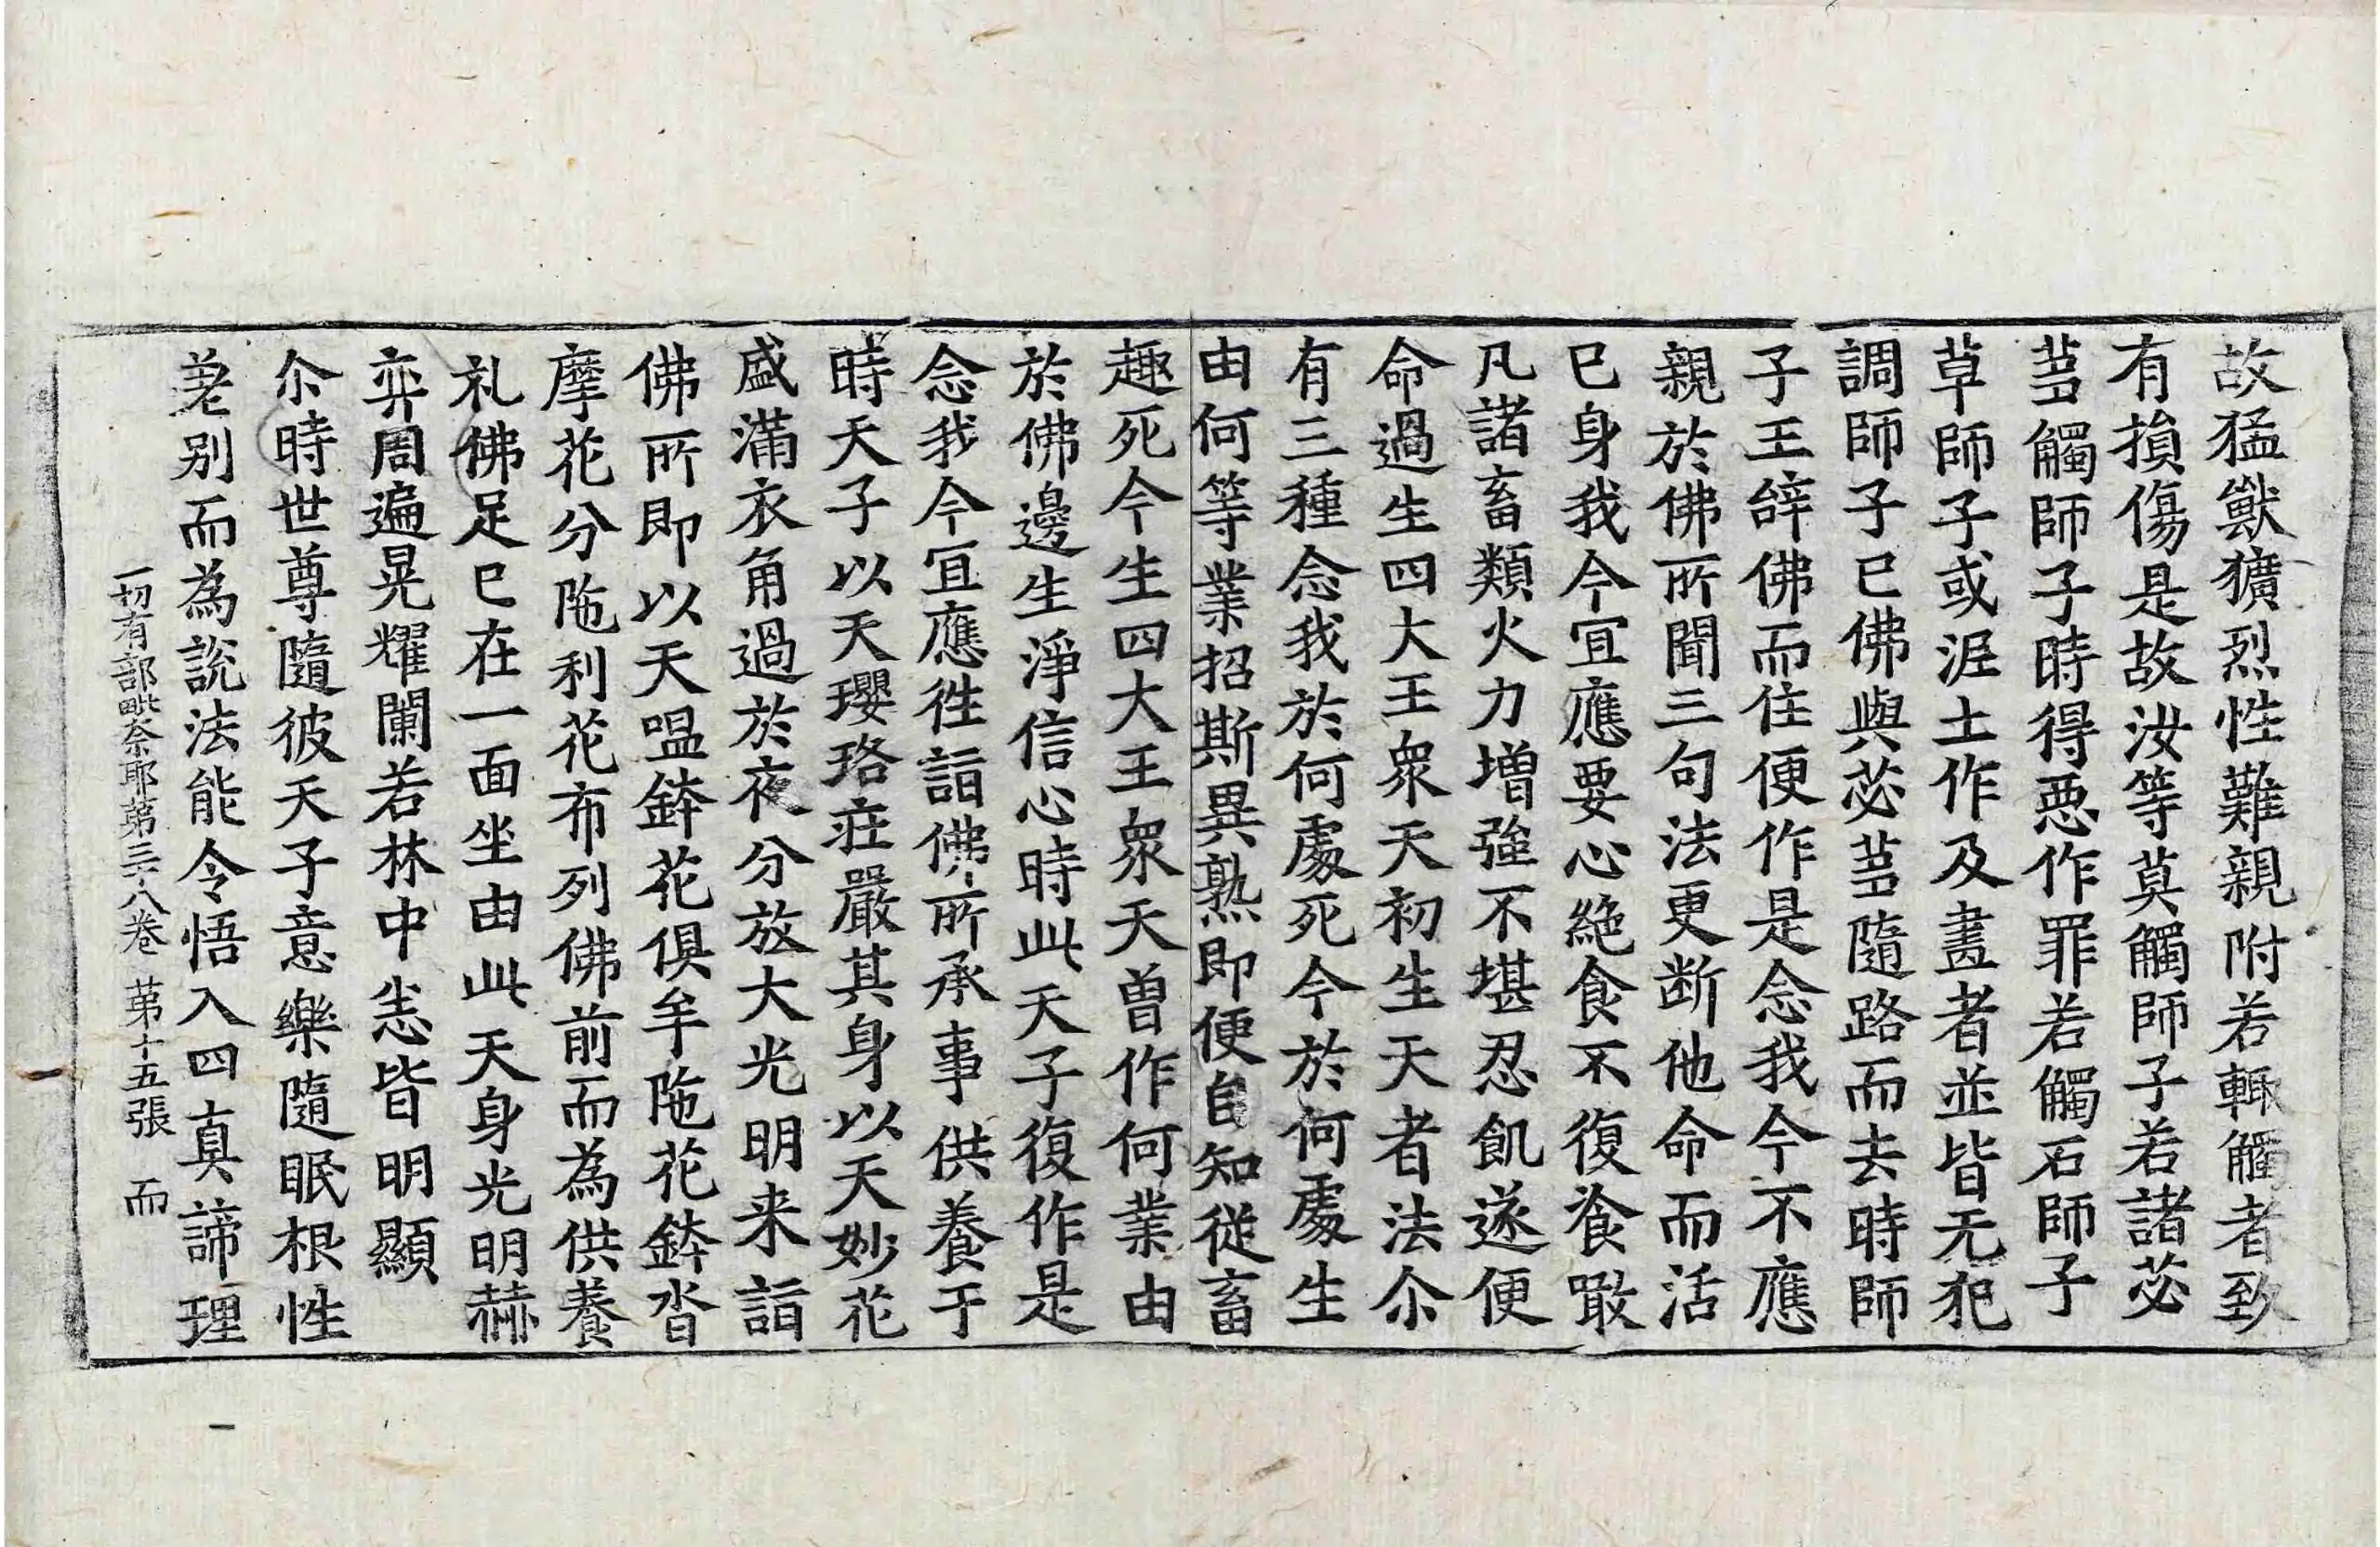 故猛獸獷烈性難親附若輙觸者致
有損傷是故汝等莫觸師子若諸苾
蒭觸師子時得惡作罪若觸石師子
草師子或泥土作及畫者並皆无犯
調師子已佛與苾蒭隨路而去時師
子王辞佛而住便作是念我今不應
親於佛所聞三句法更断他命而活
已身我今宜應要心絶食不復飡噉
凡諸畜類火力增強不堪忍飢遂便
命過生四大王衆天初生天者法尒
有三種念我於何處死今於何處生
由何等業招斯異熟即便自知從畜
趣死今生四大王衆天曽作何業由
於佛邊生淨信心時此天子復作是
念我今宜應徃詣佛所承事供養于
時天子以天瓔珞莊嚴其身以天妙花
盛滿衣角過於夜分放大光明来詣
佛所即以天嗢鉢花俱牟陁花鉢沓
摩花分陁利花布列佛前而為供養
礼佛足已在一面坐由此天身光明赫
弈周遍晃耀闌若林中恙皆明顯
尒時世尊隨彼天子意樂隨眠根性
差别而為說法能令悟入四真諦理
一切有部毗奈耶第三十八卷 第十五張 而